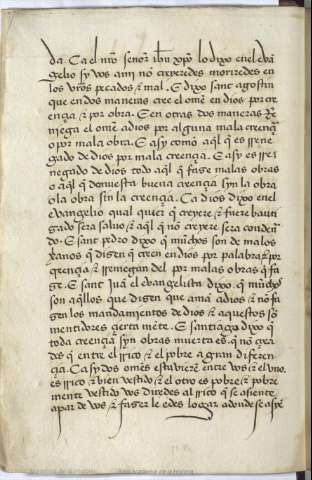 da. Ca el nr̃o señor ihũ xp̃o lo dixo enel euã
gelio sy vos a mi nõ creyeredes moriredes en
los vr̃os pecados & mal. E dixo sant agostin
que en dos maneras cree el ome en dios por cre
ençia & por obra. E en otras dos maneras Re
niega el ome a dios por alguna mala creençia
o por mala obra. E asy como aq̃l q̃ es rrene
gado de dios por mala creençia. E asy es rre
negado de dios todo aq̃l q̃ faze malas obras
o aq̃l q̃ demuestra buena creençia syn la obra
o la obra sin la creençia. Ca dios dixo enel
euangelio qual quier q̃ creyere & fuere bauti
gado sera saluo & aq̃l q̃ nõ creyere sera conden
do. E sant pedro dixo q̃ muchos son de malos
xp̃anos q̃ dizen q̃ creen en dios por palabra & por
creençia & rreniegan del por malas obras q̃ fa
ze. E sant juã el euangelista dixo. q̃ muchos
son aq̃llos que dizen que amã a dios & nõ fa
zen los mandamientos de dios & aquestos sõ
mentidores çierta mẽte. E santiago dixo q̃
toda creençia syn obras muerta es. q̃ nõ crea
des q̃ entre el rrico & el pobre a grain diferen
çia. Ca sy dos omẽs estuuierẽ entre vos & el vno
es rrico & bien vestido & el otro es pobre & pobre
mente vestido vos diredes al rrico q̃ se asiente
a par de vos & fazer le edes logar adonde se asyẽ